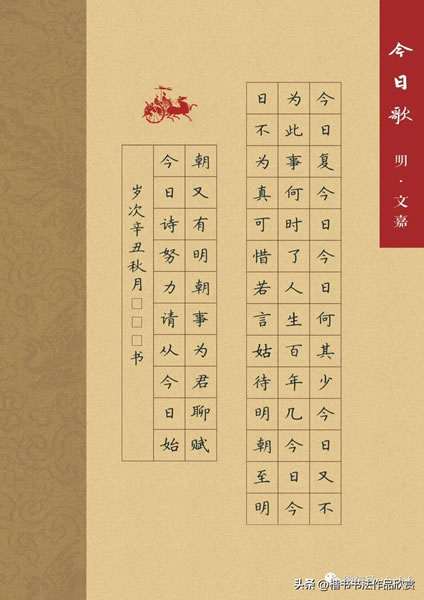 今日歌 明·文嘉
今日复今日今日何其少今日又不
为此事何时了人生百年几今日今
日不为真可惜若言姑待明朝至明
朝又有明朝事为君聊赋
今日诗努力请从今日始
岁次辛丑秋月□□□书
头条 @楷书书法作品欣赏